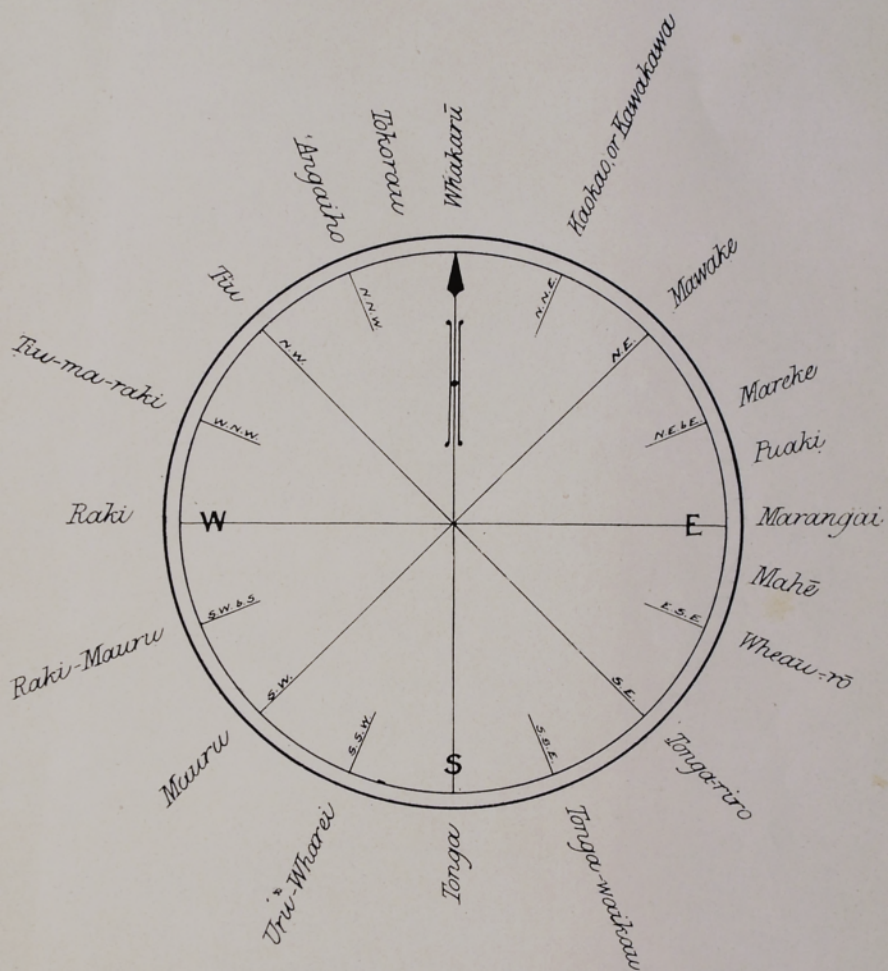 Whakarū
Kaokao, or Kawakawa
Mawake
Mareke
Puaki
Marangai
Mahē
Wheau-rō
Tonga-riro
Tonga-waikau
Tonga
Uru-Wharei
Mauru
Raki-Mauru
Raki
Tiu-ma-raki
Tiu
'Angaiho
Tokorau
N.N.E.
N.E.
N.E.b.E.
E
E.S.E
S.E.
S.S.E.
S
S.S.W.
S.W.
S.W.b.S
W
W.N.W.
N.W.
N.N.W